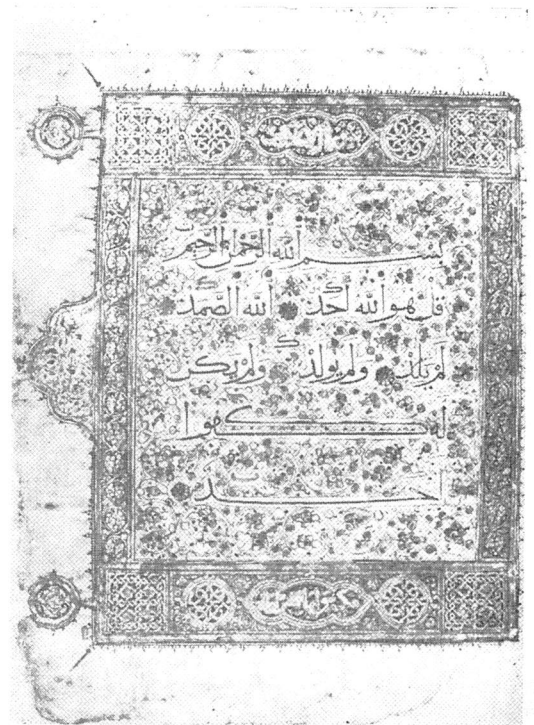 بِسْمِ اللهِ الرَّحْمٰنِ الرَّحِيمِ
قُلْ هُوَ اللهُ أَحَدٌ اللهُ الصَّمَدُ
لَمْ يَلِدْ وَلَمْ يُولَدْ وَلَمْ يَكُنْ
لَهُ كُفُوًا
أَحَدٌ